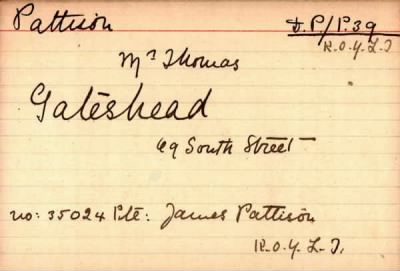 Pattison D.P/P.39
R.O.Y.L.I
Mr Thomas
Gateshead
69 South Street
no: 35024 Pte: James Pattison
K.O.Y.L.I.